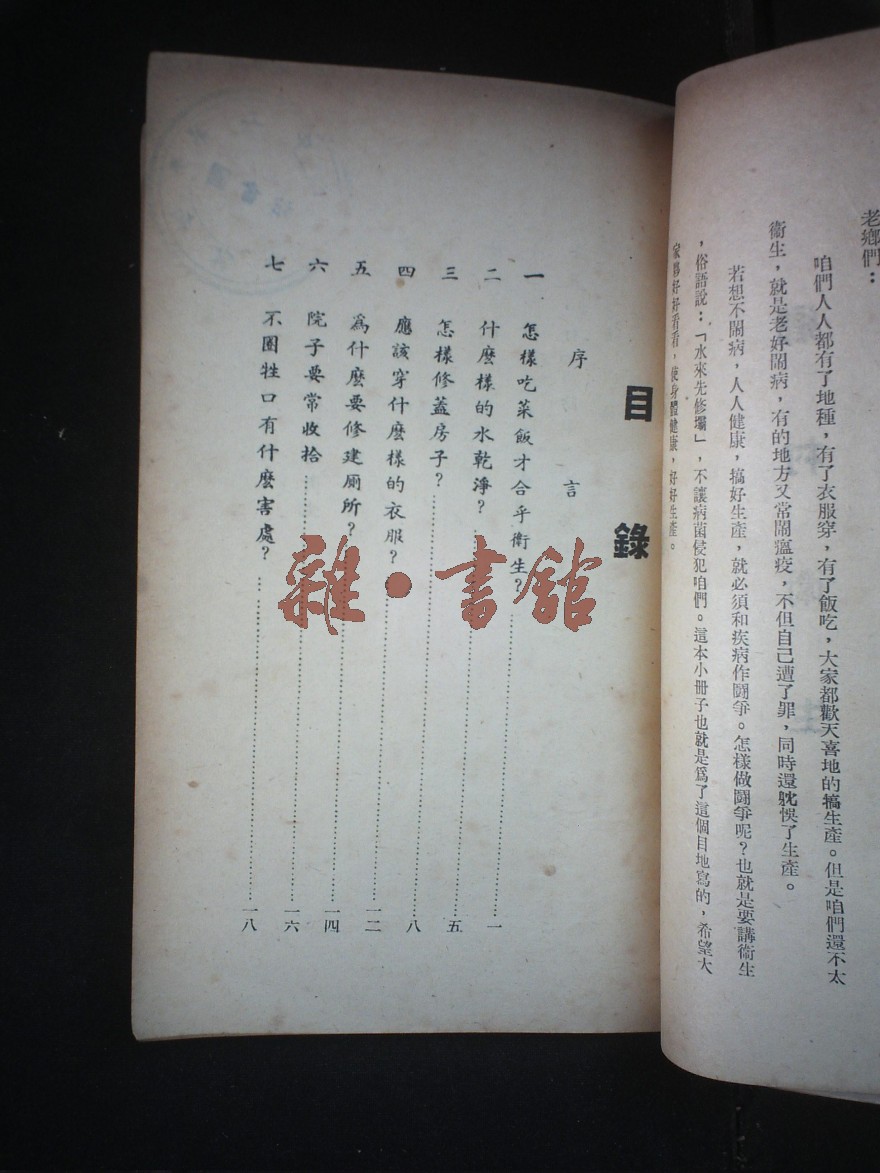 老鄉們：
咱們人人都有了地種，有了衣服穿，有了飯吃，大家都歡天喜地的犒生產。但是咱們還不太
衞生，就是老好鬧病，有的地方又常鬧瘟疫，不但自己遭了罪，同時還躭悞了生產。
若想不鬧病，人人健康，搞好生產，就必須和疾病作鬭爭。怎樣做鬭爭呢？也就是要講衞生
，俗語說：「水來先修壩」，不讓病菌侵犯咱們。這本小冊子也就是爲了這個目地寫的，希望大
家夥好好看看，使身體健康，好好生產。
目錄
序言
一 怎樣吃菜飯才合乎衞生？……一
二 什麽樣的水乾淨？……五
三 怎樣修蓋房子？……八
四 應該穿什麽樣的衣服？……一二
五 爲什麽要修建厠所？……一四
六 院子要常收拾……一六
七 不圈牲口有什麽害處？……一八
雜·書館